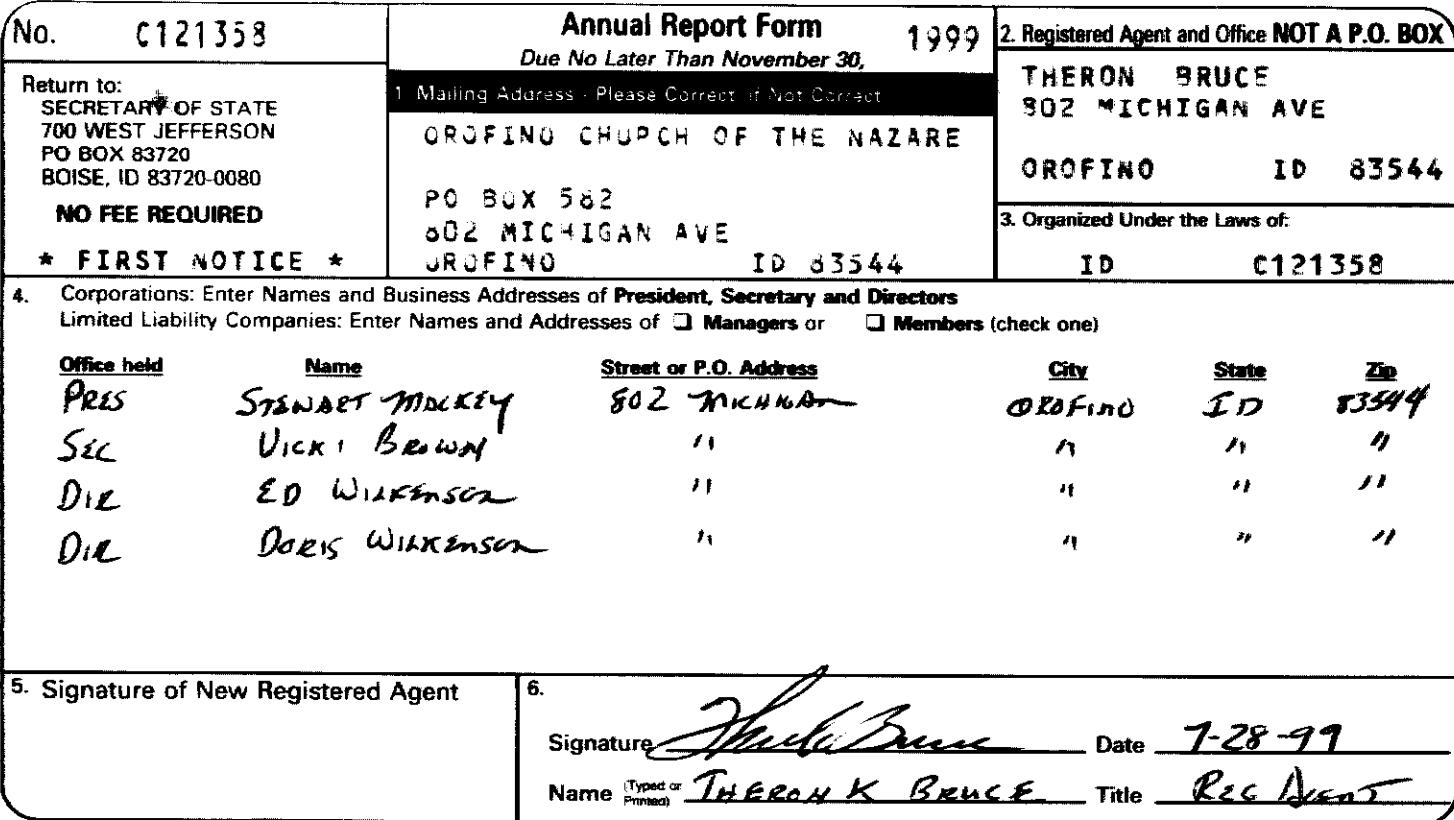 No. C121358
Return to:
SECRETARY OF STATE
700 WEST JEFFERSON
PO BOX 83720
BOISE, ID 83720-0080
NO FEE REQUIRED
* FIRST NOTICE *
Annual Report Form 1999
Due No Later Than November 30,
1 Mailing Address - Please Correct if Not Correct
OROFINO CHURCH OF THE NAZARE
PO BOX 582
802 MICHIGAN AVE
OROFINO ID 83544
2. Registered Agent and Office NOT A P.O. BOX
THERON BRUCE
802 MICHIGAN AVE
OROFINO ID 83544
3. Organized Under the Laws of:
ID C121358
4. Corporations: Enter Names and Business Addresses of President, Secretary and Directors
Limited Liability Companies: Enter Names and Addresses of ❏ Managers or ❏ Members (check one)
Office held Name Street or P.O. Address City State Zip
PRES STEWART MACKEY 802 MICHIGAN OROFINO ID 83544
SEC VICKI BROWN " " " "
DIR ED WILKENSON " " " "
DIR DORIS WILKENSON " " " "
5. Signature of New Registered Agent
6.
Signature Theron Bruce Date 7-28-99
Name (Typed or Printed) THERON K BRUCE Title REG AGENT